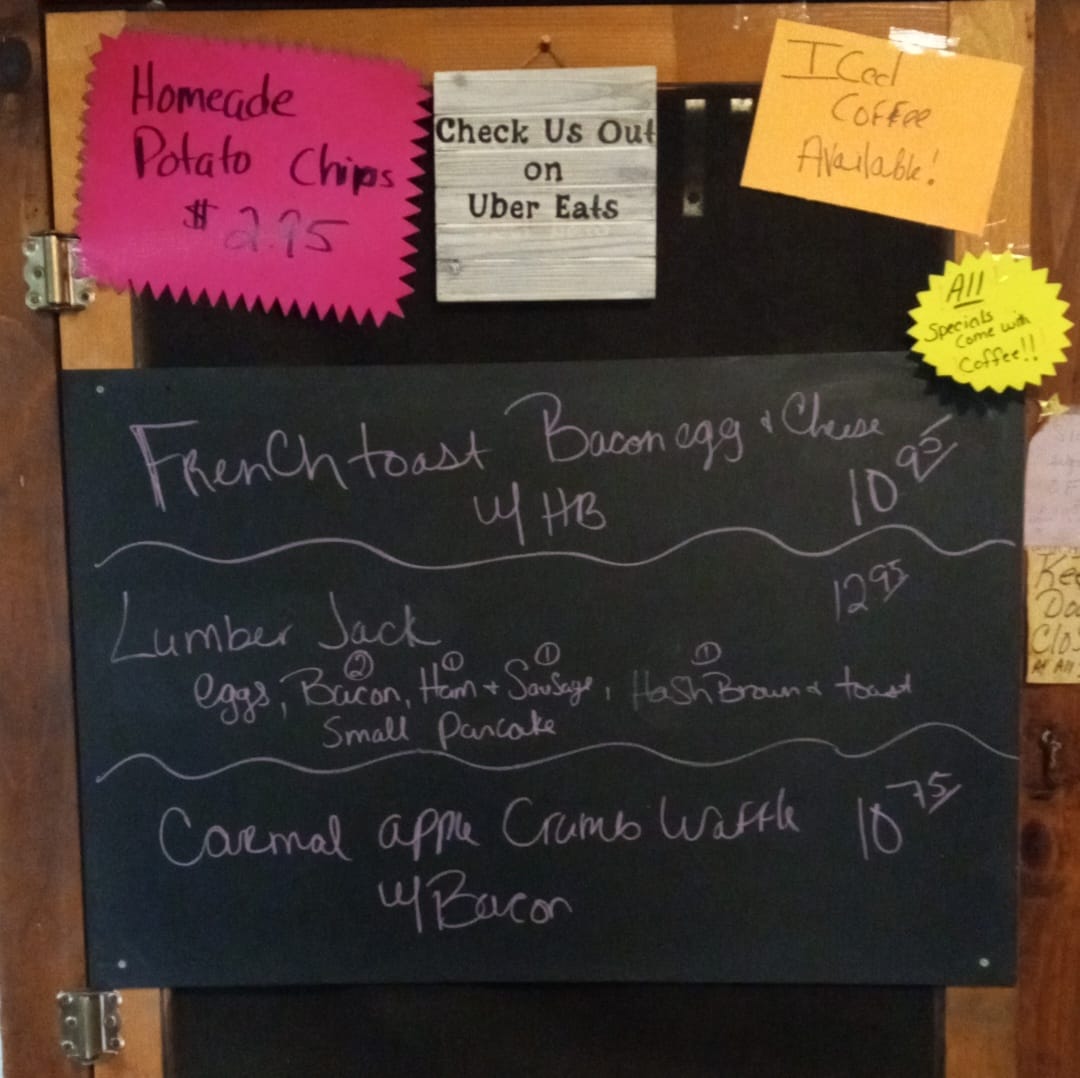 Homeade
Potato Chips
$ 2.95
Check Us Out
on
Uber Eats
ICed
Coffee
Available!
All
Specials
come with
Coffee!!
FRenCh toast Bacon egg + Cheese
w/ HB 10 95
Lumber Jack 12 95
② ① ① ①
eggs, Bacon, Ham + Sausage, HaSh Brown + toast
Small Pancake
Carmal apple Crumb Waffle 10 75
w/ Bacon
Clo
At All